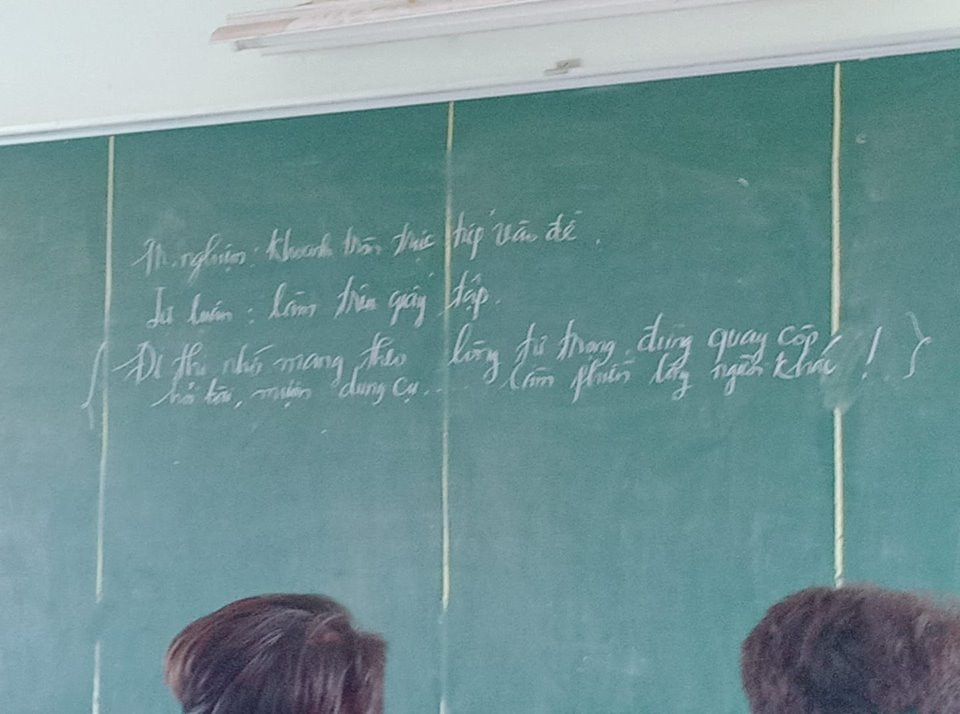 Tr. nghiệm: Khoanh tròn trực tiếp vào đề.
Tự luận: làm trên giấy tập.
{ Đi thi nhớ mang theo lòng tự trọng, đừng quay cóp,
hỏi bài, mượn dụng cụ... làm phiền lòng người khác! }